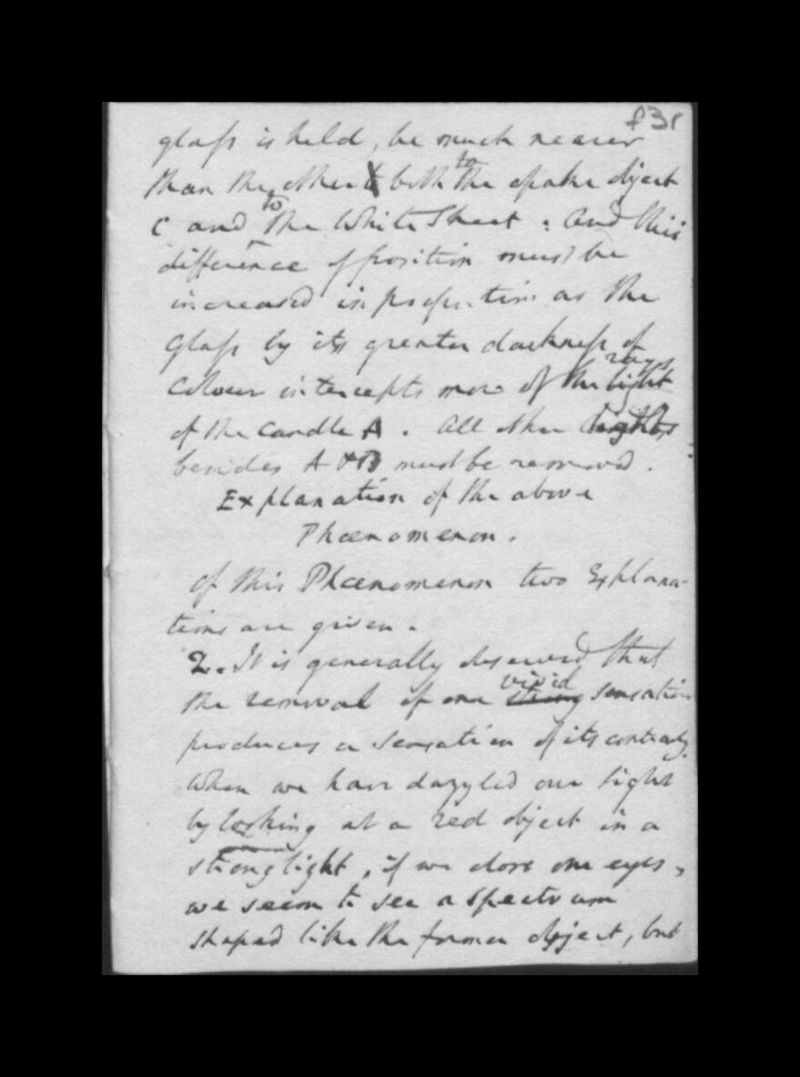 831
glass is held, be much nearer
than the other & both to the opake object
C and to the White Sheet : And this
difference of position must be
increased in proportion as the
Glass by its greater darkness of
colour intercepts more of the rays light
of the Candle A . All other lights
besides A & B must be removed .
Explanation of the above
Phœnomenon .
Of this Phœnomenon two Explana-
tions are given .
2. It is generally observed that
the removal of one strong vivid sensation
produces a sensation of its contrary.
When we have dazzled our sight
by looking at a red object in a
strong light , if we close our eyes ,
we seem to see a spectrum
shaped like the former object , but